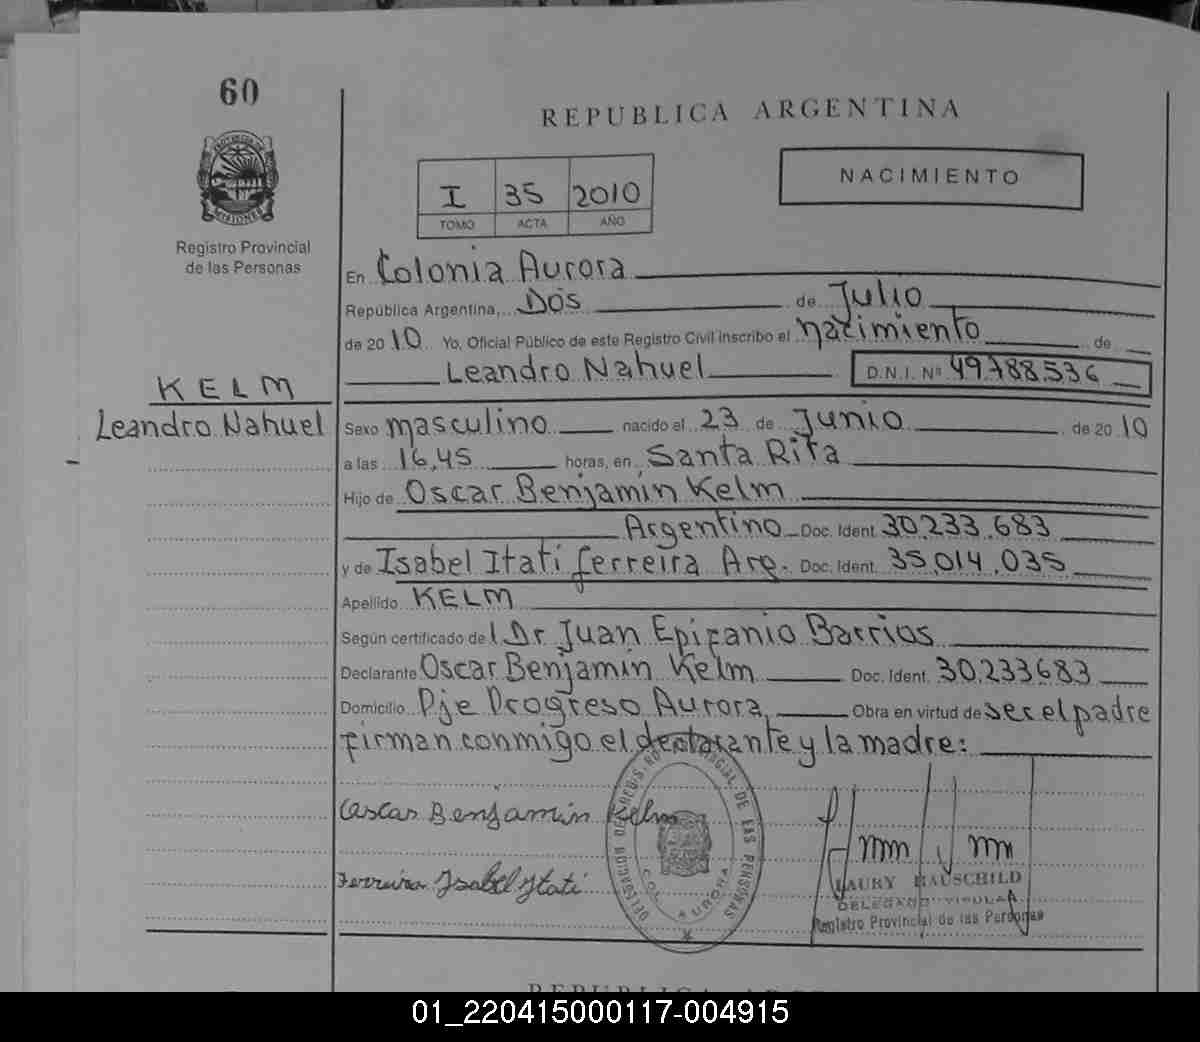 60
REPUBLICA ARGENTINA
PROVINCIA DE
MISIONES
Registro Provincial
de las Personas
I 35 2010
TOMO ACTA AÑO
NACIMIENTO
En Colonia Aurora
República Argentina, Dos de Julio
de 2010 Yo, Oficial Público de este Registro Civil inscribo el nacimiento de
Leandro Nahuel D.N.I. Nº 49.788.536
KELM
Leandro Nahuel
Sexo masculino nacido el 23 de Junio de 2010
a las 16,45 horas, en Santa Rita
Hijo de Oscar Benjamín Kelm
Argentino Doc. Ident. 30.233.683
y de Isabel Itatí ferreira Arg. Doc. Ident. 35.014.035
Apellido KELM
Según certificado del Dr Juan Epifanio Barrios
Declarante Oscar Benjamín Kelm Doc. Ident. 30.233683
Domicilio Pje Progreso Aurora Obra en virtud de ser el padre
firman conmigo el declarante y la madre:
Oscar Benjamin Kelm
Ferreira Isabel Itati
COL. AURORA
LAURY HAUSCHILD
DELEGADO TITULAR
Registro Provincial de las Personas
REPUBLICA
01_220415000117-004915